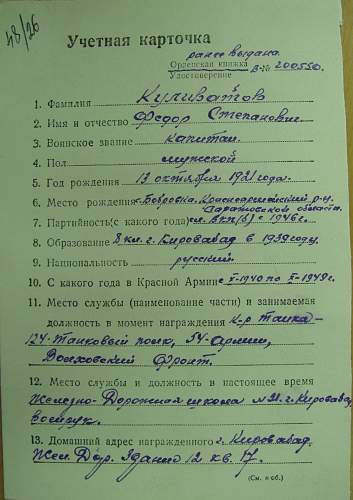 48/26
Учетная карточка
ранее выдана
Орденская книжка
Удостоверение В-№ 200550.
1. Фамилия Куливатов
2. Имя и отчество Федор Степанович
3. Воинское звание капитан.
4. Пол мужской
5. Год рождения 13 октября 1921 года.
6. Место рождения с. Бобровка, Красноармейский р-н,
Саратовской области.
7. Партийность (с какого года) чл. ВКП(б) с 1946 г.
8. Образование 8 кл. г. Кировабад в 1939 году.
9. Национальность русский
10. С какого года в Красной Армии с V-1940 по X-1949 г.
11. Место службы (наименование части) и занимаемая
должность в момент награждения К-р танка-
124-танковый полк, 54-армии,
Волховский Фронт.
12. Место службы и должность в настоящее время
Железно-Дорожная школа г. Кировабад,
военрук.
13. Домашний адрес награжденного г. Кировабад,
Жел. Дор. Здание 12 кв. 17.
(См. н об.)